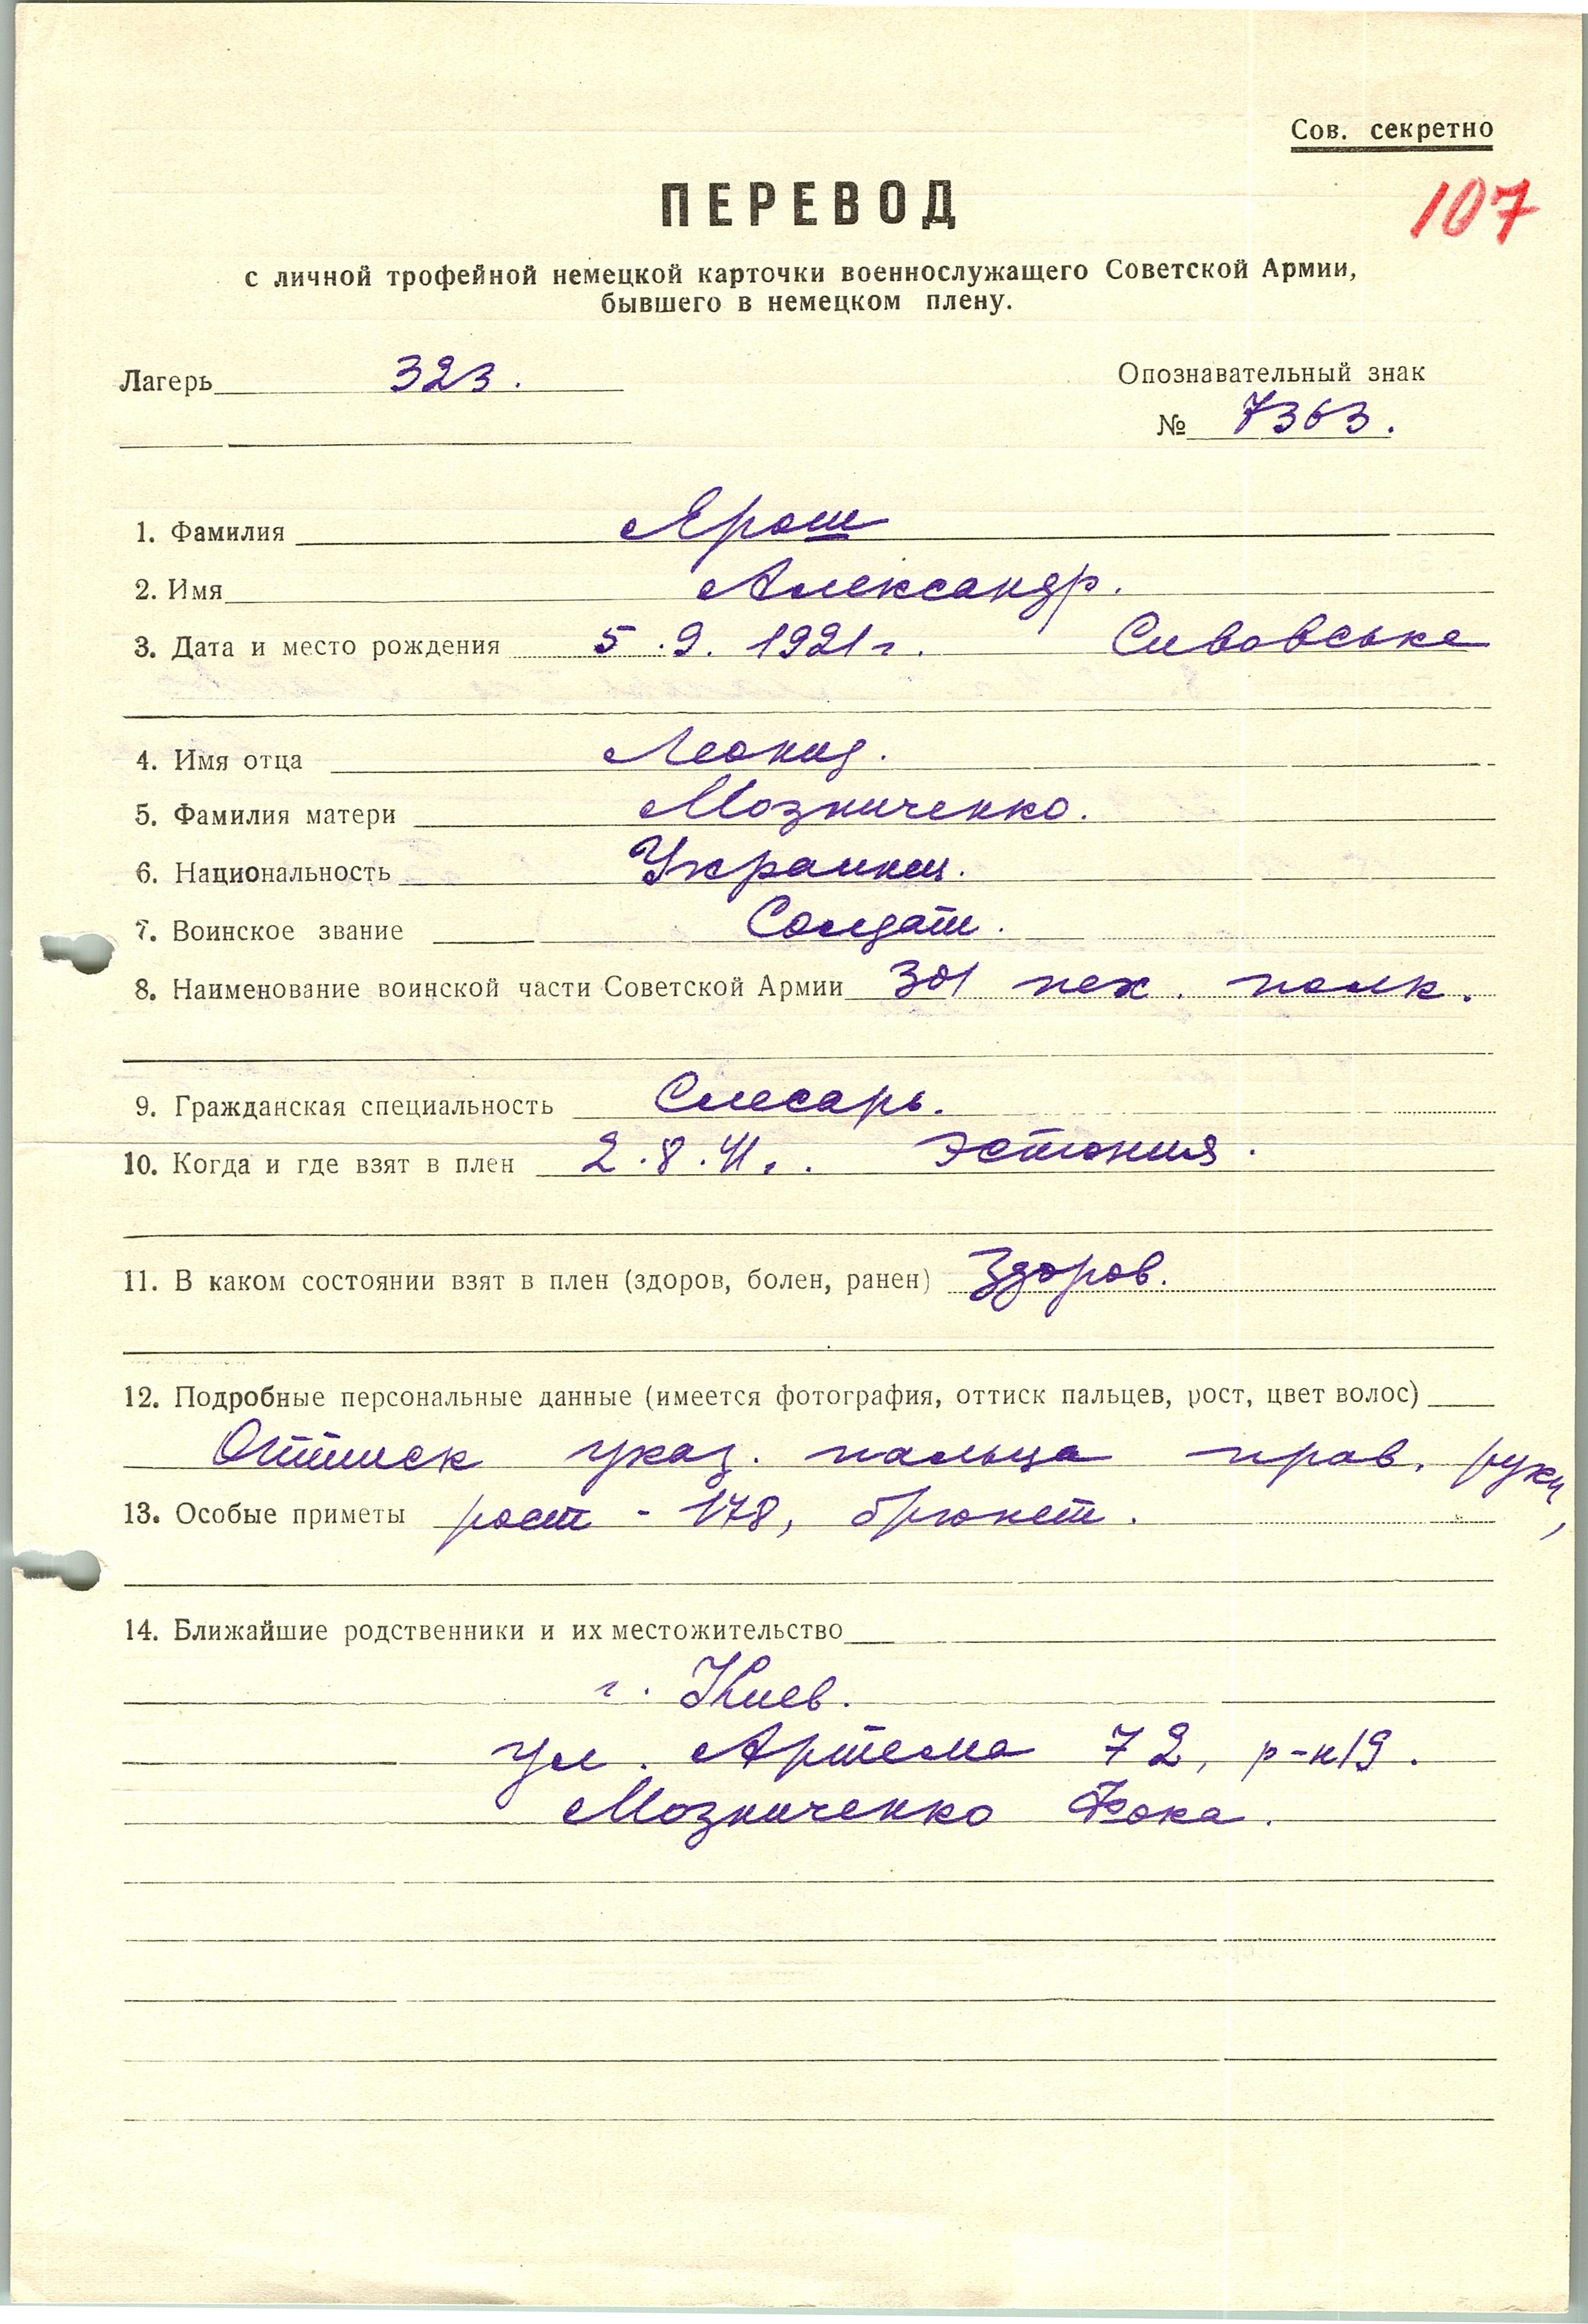 Сов. секретно
107
ПЕРЕВОД
с личной трофейной немецкой карточки военнослужащего Советской Армии,
бывшего в немецком плену.
Лагерь 323.
Опознавательный знак
№ 7363.
1. Фамилия Ярош
2. Имя Александр.
3. Дата и место рождения 5.9.1921г. Сивовське
4. Имя отца Леонид.
5. Фамилия матери Мозниченко.
6. Национальность Украинец.
7. Воинское звание Солдат.
8. Наименование воинской части Советской Армии 301 пех. полк.
9. Гражданская специальность Слесарь.
10. Когда и где взят в плен 2.8.41.. Эстония.
11. В каком состоянии взят в плен (здоров, болен, ранен) Здоров.
12. Подробные персональные данные (имеется фотография, оттиск пальцев, рост, цвет волос)
Оттиск указ. пальца прав. руки,
13. Особые приметы рост - 178, брюнет.
14. Ближайшие родственники и их местожительство
г. Киев.
ул. Артема 72, р-н 19.
Мозниченко Фока.